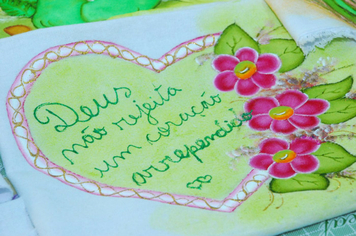 Deus
não rejeita
um coração
arrependido